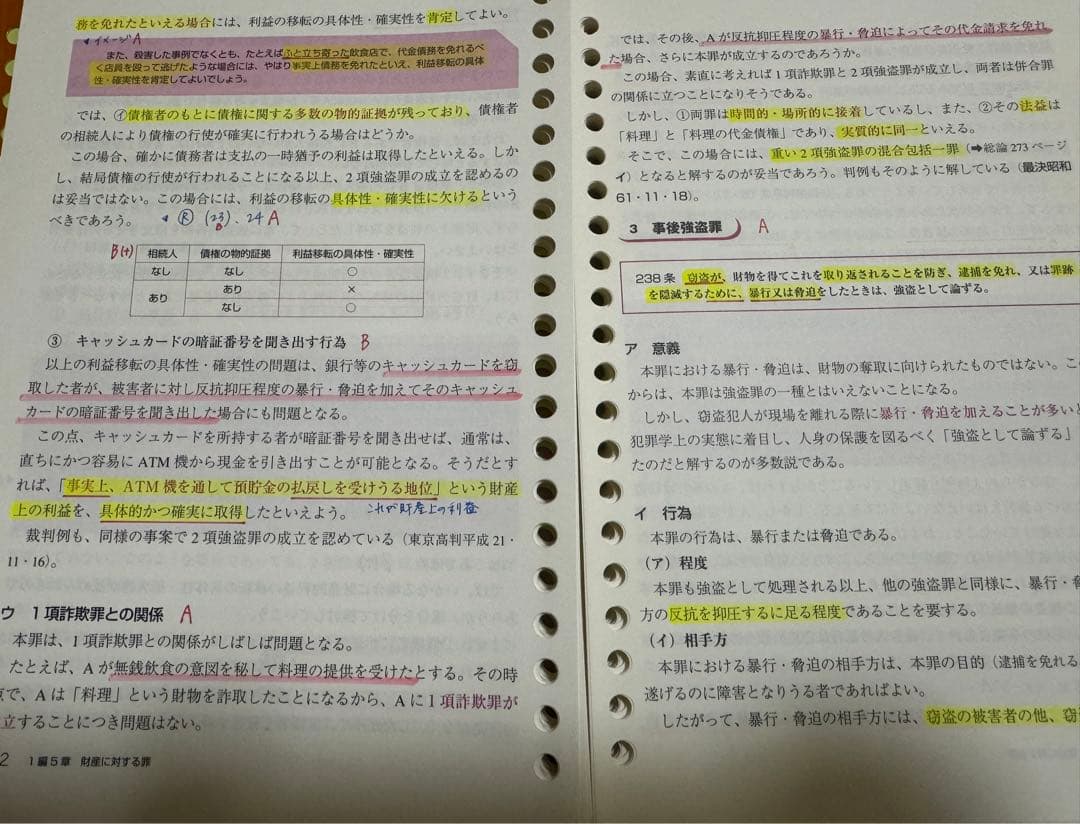 務を免れたといえる場合には、利益の移転の具体性・確実性を肯定してよい。
イメージA
また、殺害した事例でなくとも、たとえばふと立ち寄った飲食店で、代金債務を免れるべ
く店員を殴って逃げたような場合には、やはり事実上債務を免れたといえ、利益移転の具体
性・確実性を肯定してよいでしょう。
では、㋑債権者のもとに債権に関する多数の物的証拠が残っており、債権者
の相続人により債権の行使が確実に行われうる場合はどうか。
この場合、確かに債務者は支払の一時猶予の利益は取得したといえる。しか
し、結局債権の行使が行われることになる以上、2項強盗罪の成立を認めるの
は妥当ではない。この場合には、利益の移転の具体性・確実性に欠けるという
べきであろう。 Ⓡ (23)、24 A
B
B(+)
相続人 債権の物的証拠 利益移転の具体性・確実性
なし なし ○
あり あり ×
なし ○
③ キャッシュカードの暗証番号を聞き出す行為 B
以上の利益移転の具体性・確実性の問題は、銀行等のキャッシュカードを窃
取した者が、被害者に対し反抗抑圧程度の暴行・脅迫を加えてそのキャッシュ
カードの暗証番号を聞き出した場合にも問題となる。
この点、キャッシュカードを所持する者が暗証番号を聞き出せば、通常は、
直ちにかつ容易にATM機から現金を引き出すことが可能となる。そうだとす
れば、「事実上、ATM機を通して預貯金の払戻しを受けうる地位」という財産
上の利益を、具体的かつ確実に取得したといえよう。 これが財産上の利益
裁判例も、同様の事案で2項強盗罪の成立を認めている(東京高判平成21・
11・16)。
ウ 1項詐欺罪との関係 A
本罪は、1項詐欺罪との関係がしばしば問題となる。
たとえば、Aが無銭飲食の意図を秘して料理の提供を受けたとする。その時
点で、Aは「料理」という財物を詐取したことになるから、Aに1項詐欺罪が
立することにつき問題はない。
2 1編5章 財産に対する罪
では、その後、Aが反抗抑圧程度の暴行・脅迫によってその代金請求を免れ
た場合、さらに本罪が成立するのであろうか。
この場合、素直に考えれば1項詐欺罪と2項強盗罪が成立し、両者は併合罪
の関係に立つことになりそうである。
しかし、①両罪は時間的・場所的に接着しているし、また、②その法益は
「料理」と「料理の代金債権」であり、実質的に同一といえる。
そこで、この場合には、重い2項強盗罪の混合包括一罪(➡総論273ページ
イ)となると解するのが妥当であろう。判例もそのように解している(最決昭和
61・11・18)。
3 事後強盗罪 A
238条 窃盗が、財物を得てこれを取り返されることを防ぎ、逮捕を免れ、又は罪跡
を隠滅するために、暴行又は脅迫をしたときは、強盗として論ずる。
ア 意義
本罪における暴行・脅迫は、財物の奪取に向けられたものではない。こ
からは、本罪は強盗罪の一種とはいえないことになる。
しかし、窃盗犯人が現場を離れる際に暴行・脅迫を加えることが多いと
犯罪学上の実態に着目し、人身の保護を図るべく「強盗として論ずる」
たのだと解するのが多数説である。
イ 行為
本罪の行為は、暴行または脅迫である。
(ア)程度
本罪も強盗として処理される以上、他の強盗罪と同様に、暴行・
方の反抗を抑圧するに足る程度であることを要する。
(イ)相手方
本罪における暴行・脅迫の相手方は、本罪の目的(逮捕を免れる
遂げるのに障害となりうる者であればよい。
したがって、暴行・脅迫の相手方には、窃盗の被害者の他、窃